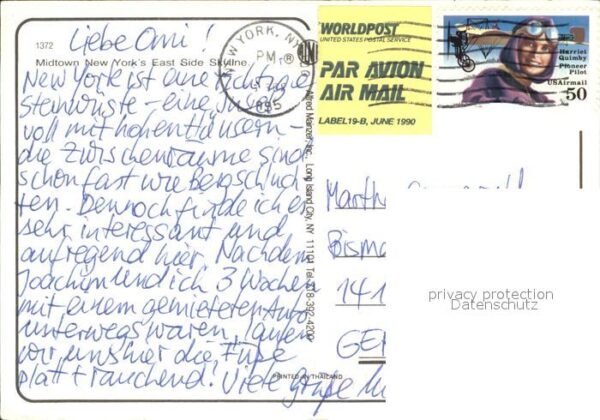 1372
Liebe Omi!
Midtown New York's East Side Skyline.
New York ist eine richtige
Steinwüste - eine Insel
voll mit hohen Häusern -
die Zwischenräume sind
schon fast wie Bergschluch
ten. Dennoch finde ich es
sehr interessant und
aufregend hier. Nachdem
Joachim und ich 3 Wochen
mit einem gemieteten Auto
unterwegs waren, laufen
wir uns hier die Füße
platt
Viele Grüße
NEW YORK, NY
PM
1995
WORLDPOST
UNITED STATES POSTAL SERVICE
PAR AVION
AIR MAIL
LABEL 19-B, JUNE 1990
Harriet
Quimby
Pioneer
Pilot
USAirmail
50
Alfred Mainzer, Inc., Long Island City, NY 11101 Tel. 718-392-4200
PRINTED IN THAILAND
Marth
Bisma
141
GE
privacy protection
Datenschutz